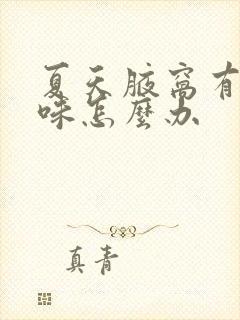 夏天腋窩有
味怎麼办
真青